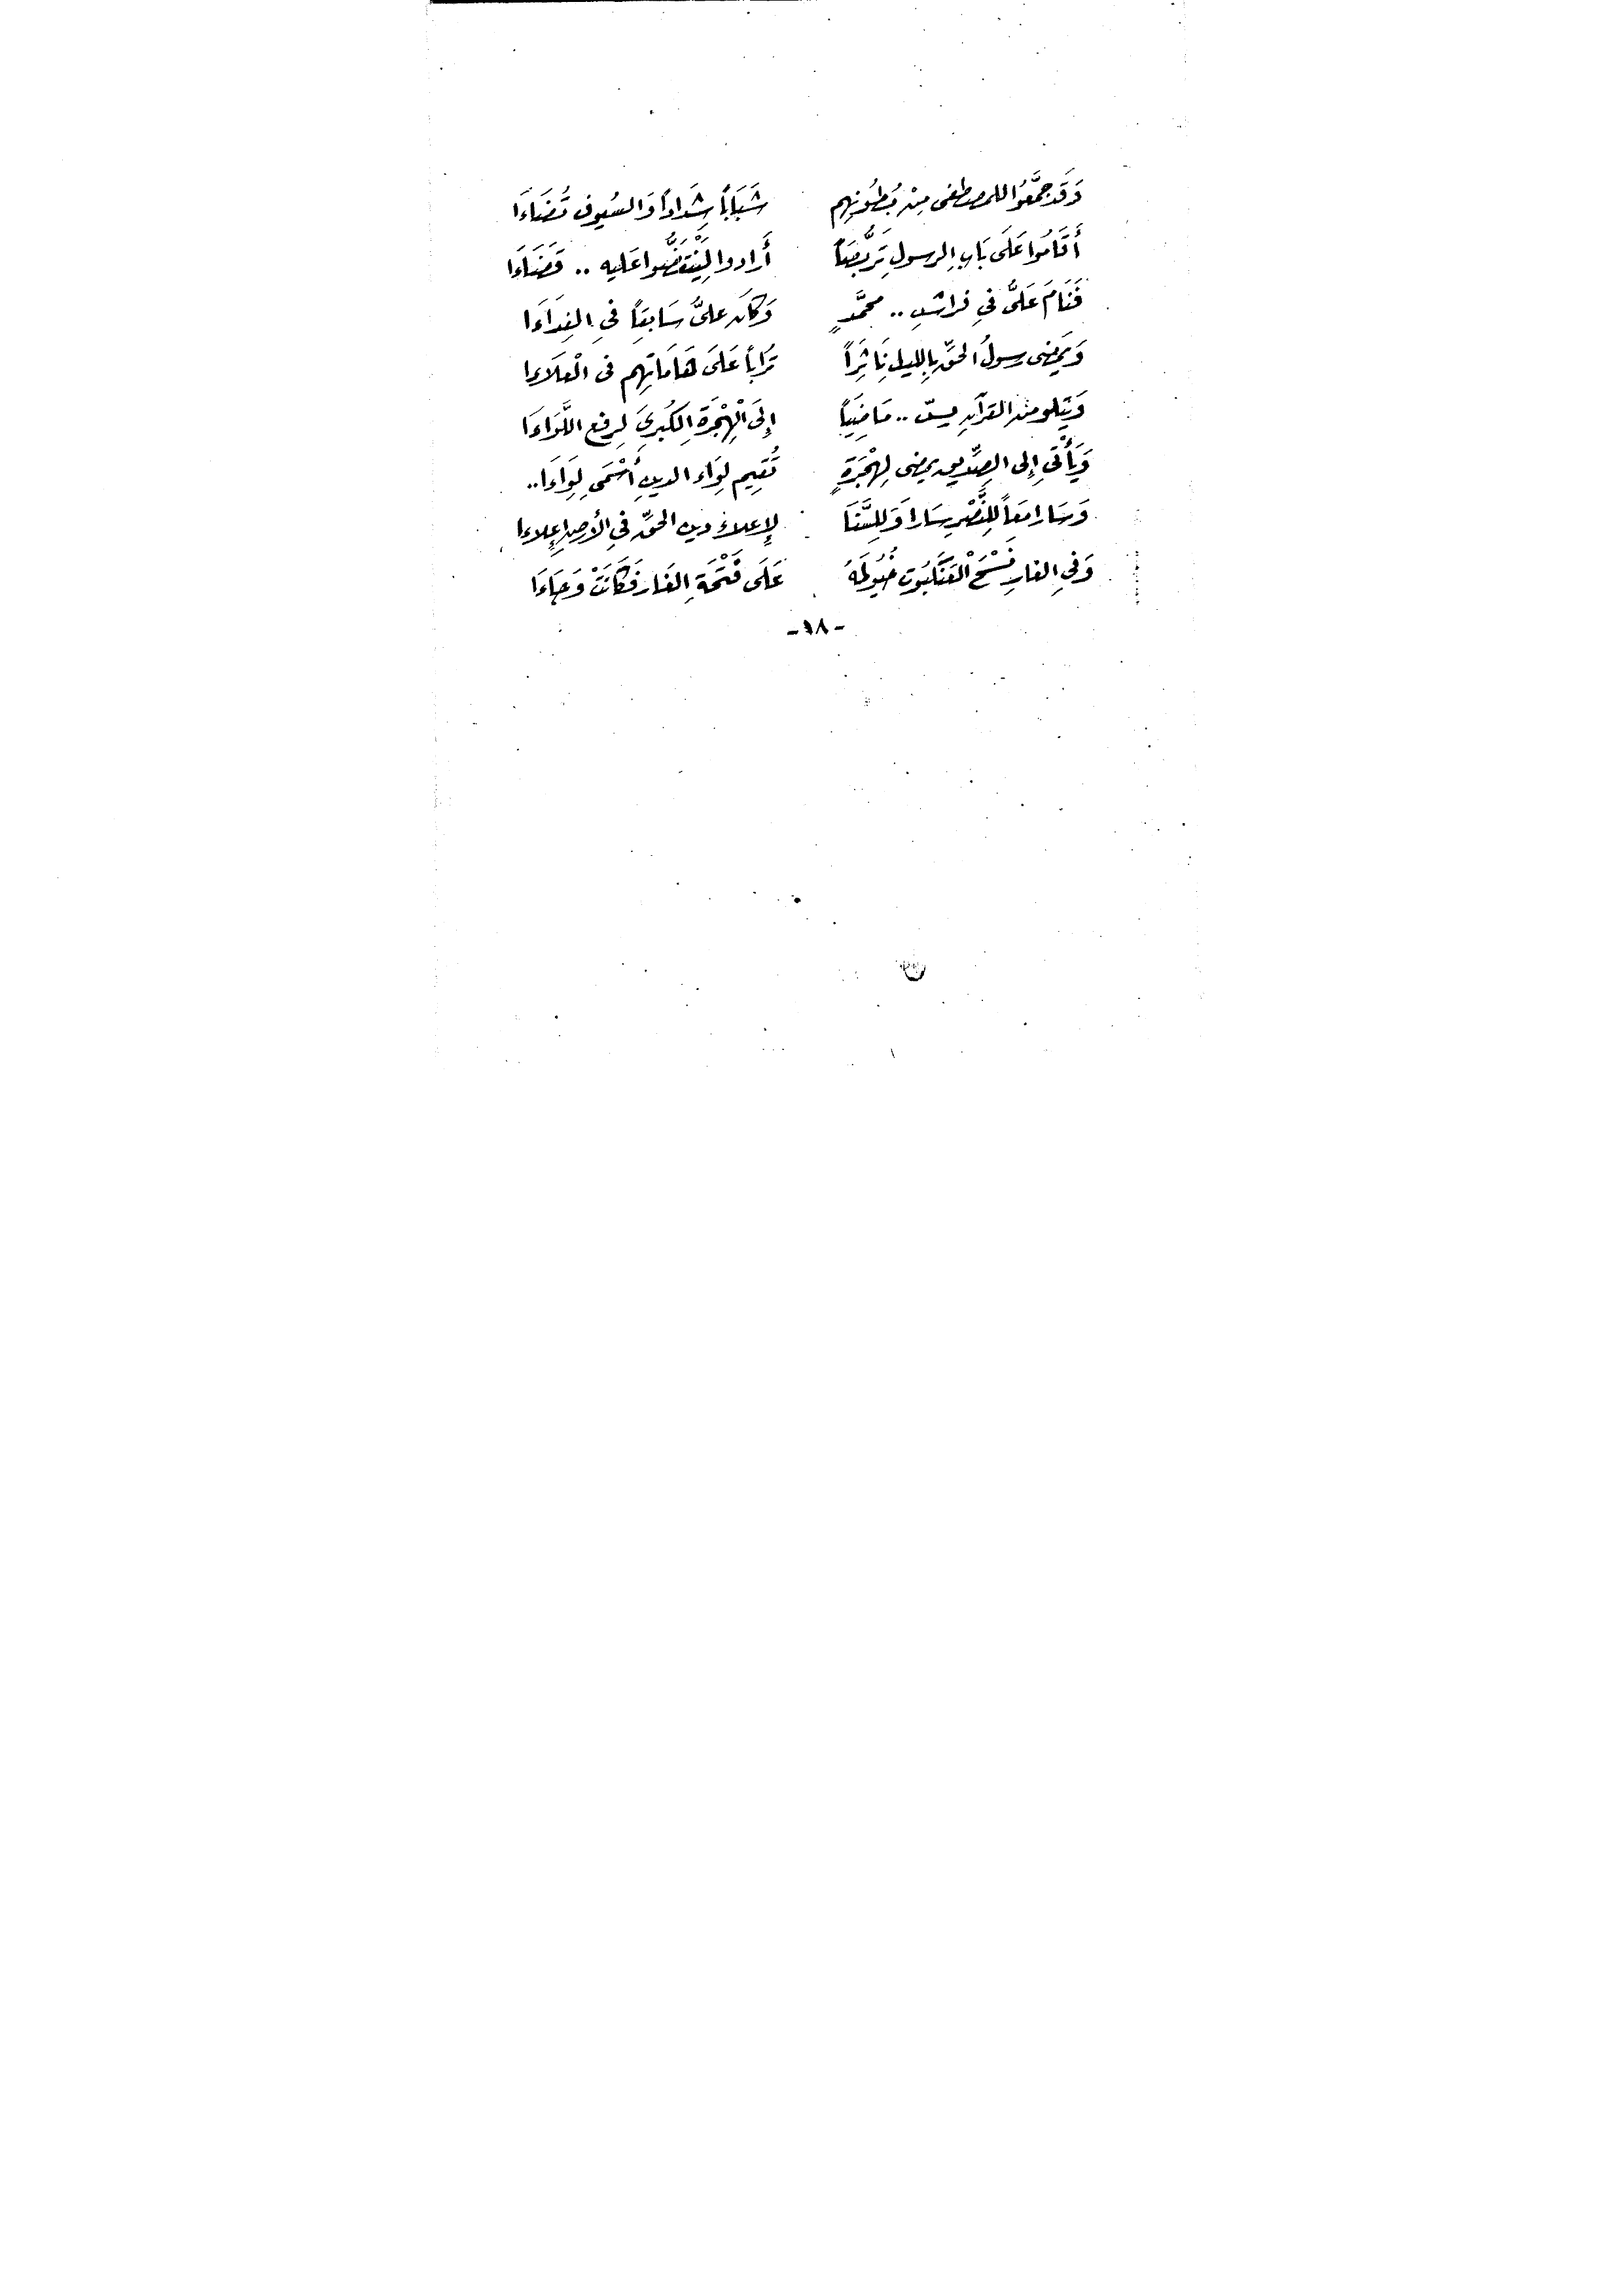 وَقَد جمَّعُوا للمصطفى مِنْ بُطُونِهِم شَبَابَاً شِدَاداً وَالسُيوف تُضَاءَا
أَقَامُوا عَلَى بَابِ الرسولِ تَرَبُّصَاً أَرادوا لِيَنْقَضُّوا عَليه .. قَضَاءَا
فَنَامَ عَلىُّ فيِ فراشِ .. محمَّدٍ وَكَانَ علىُّ سَابقاً فيِ الفِدَاءَا
وَيَمضِى رسولُ الحقِّ بالليلِ نَاثِرَاً تُرَابَاً عَلَى هَامَاتِهِم فى الْعَلَاءا
وَيَتلو منَ القرآنِ يسَ .. مَاضِيَاً إِلىَ الْهِجْرَةِ الكُبرىَ لِرفع اللِّوَاءَا
وَيَأْتيِ إِلى الصِدِّيق يمضى لِهِجْرَةٍ تُقِيم لِوَاء الدينِ أَسْمَى لِوَاءَا ..
وَسَارا مَعَاً لِلنَّصْرِ سَارا وَلِلسَّنَا لإِعلاءِ دينِ الحقِّ فيِ الأرضِ إِعلاءا
وَفيِ الغارِ نَسْجُ الْعَنْكَبُوتِ خُيُوطَهُ عَلَى فَتْحَةِ الغَار فَكَانَتْ وَجَاءَا
-١٨-